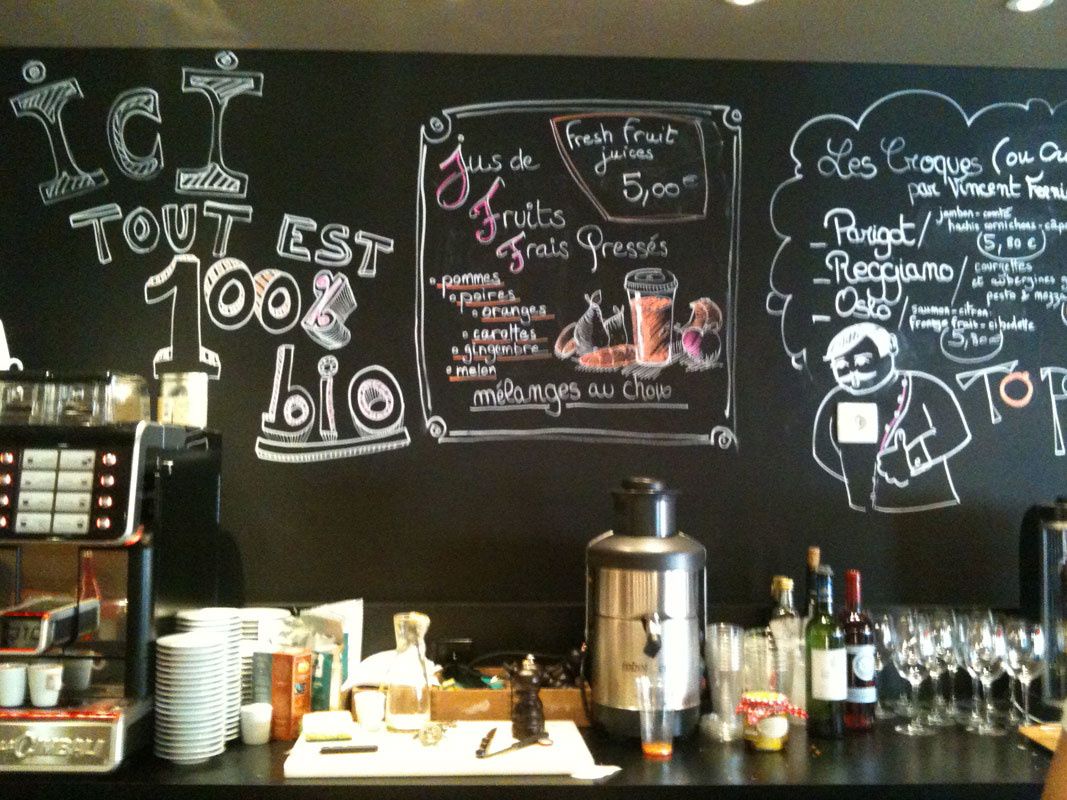 ici
TOUT EST
100%
bio
Jus de
Fruits
Frais Pressés
Fresh Fruit
juices
5,00€
pommes
poires
oranges
carottes
gingembre
melon
mélanges au choix
Les Croques (ou
par Vincent
- Parigot /
jambon - comté
hachis cornichons - câpres
5,80€
- Reggiano /
courgettes
et aubergines
pesto &
- Oslo /
saumon - citron
fromage frais - ciboulette
5,80€
TOP
CIMBALI